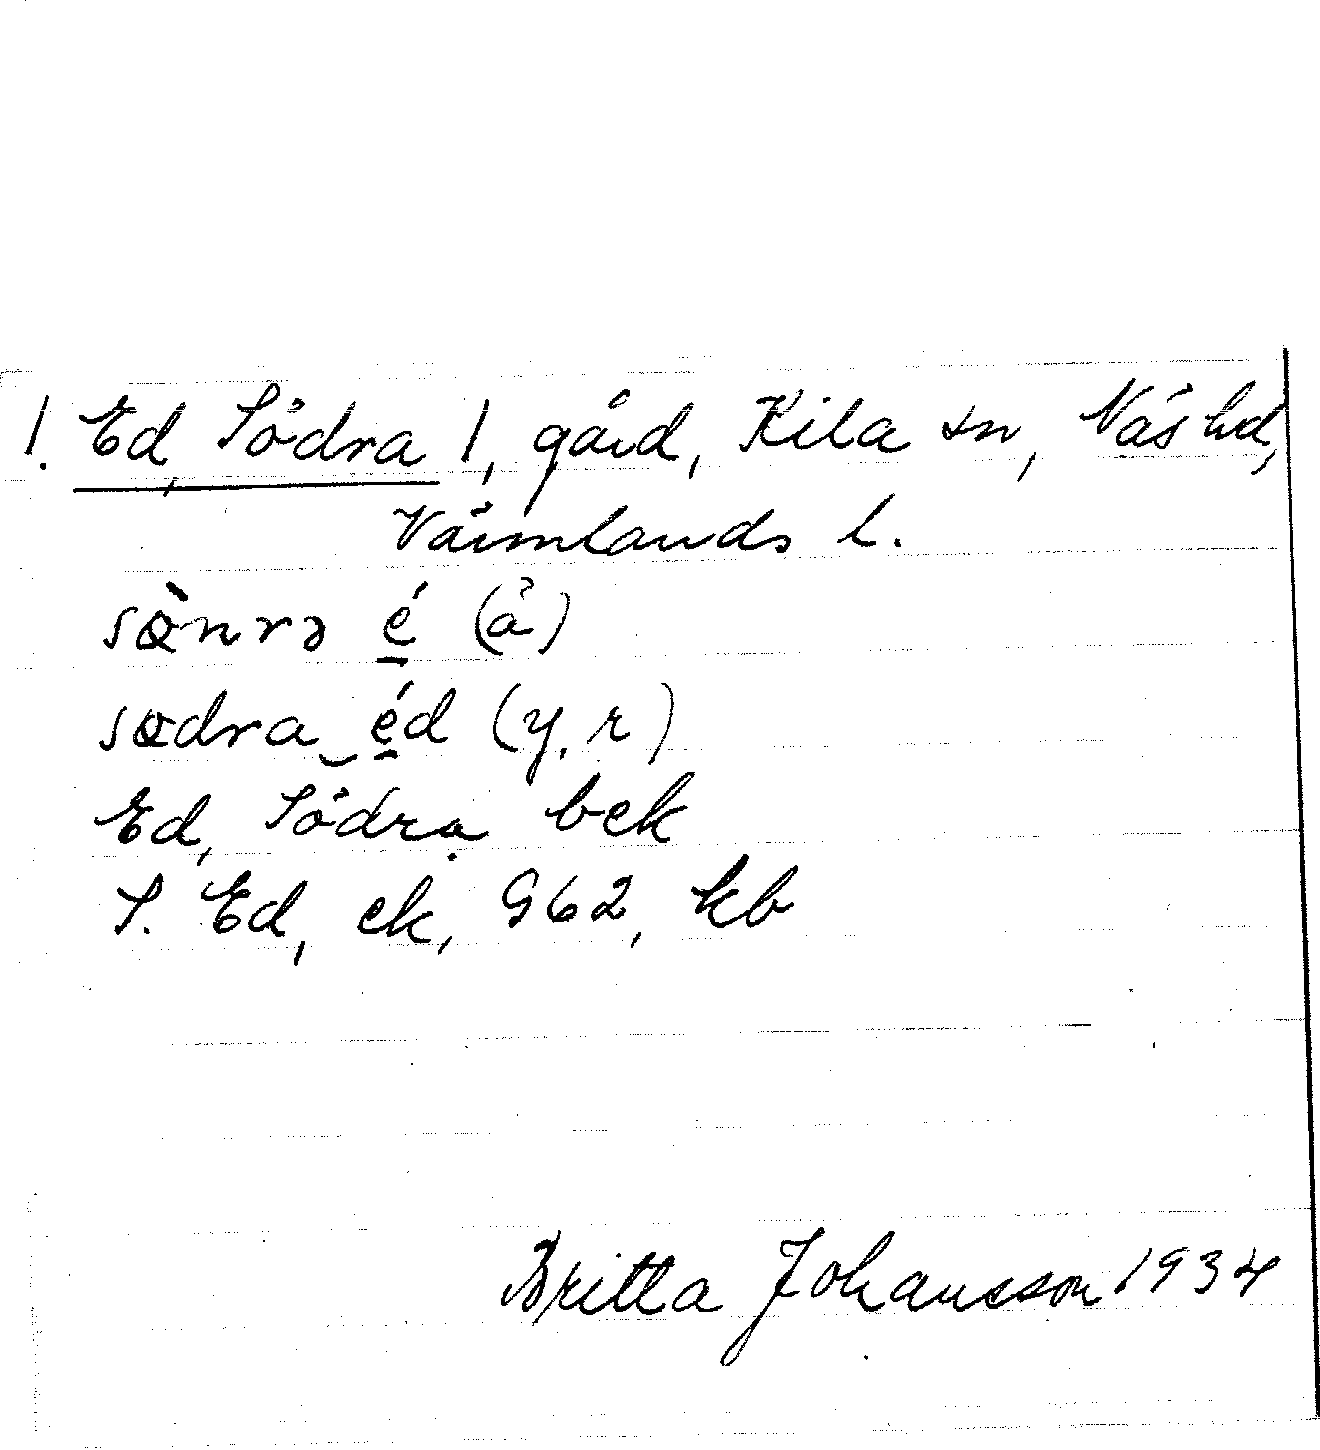 1. Ed, Södra 1, gård, Kila sn, Näs hd,
Värmlands l.
sœ̀nrə é̲ (å)
sœdra‿é̲d (y, r)
Ed, Södra bek
S. Ed, ek, G62, kb
Britta Johansson 1934